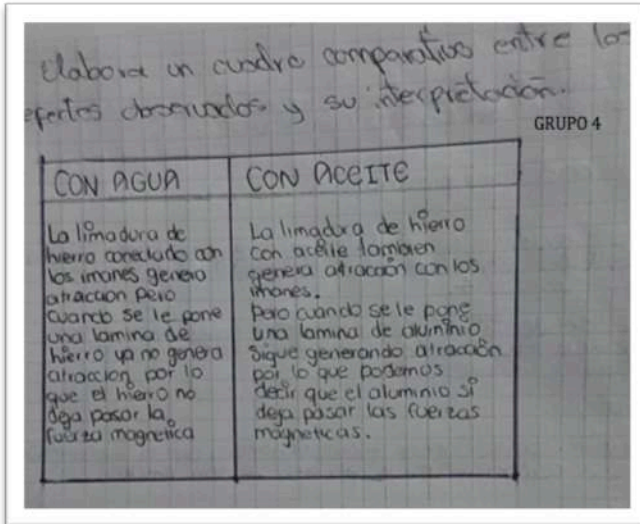 elabora un cuadro comparativo entre los
efectos observados y su interpretación.
GRUPO 4
CON AGUA
La limadura de
hierro conectado con
los imanes genera
atraccion pero
cuando se le pone
una lamina de
hierro ya no genera
atraccion por lo
que el hierro no
deja pasar la
fuerza magnetica
CON ACEITE
La limadura de hierro
con aceite tambien
genera atracción con los
imanes.
Pero cuando se le pone
una lamina de aluminio
sigue generando atracción
por lo que podemos
decir que el aluminio si
deja pasar las fuerzas
magneticas.